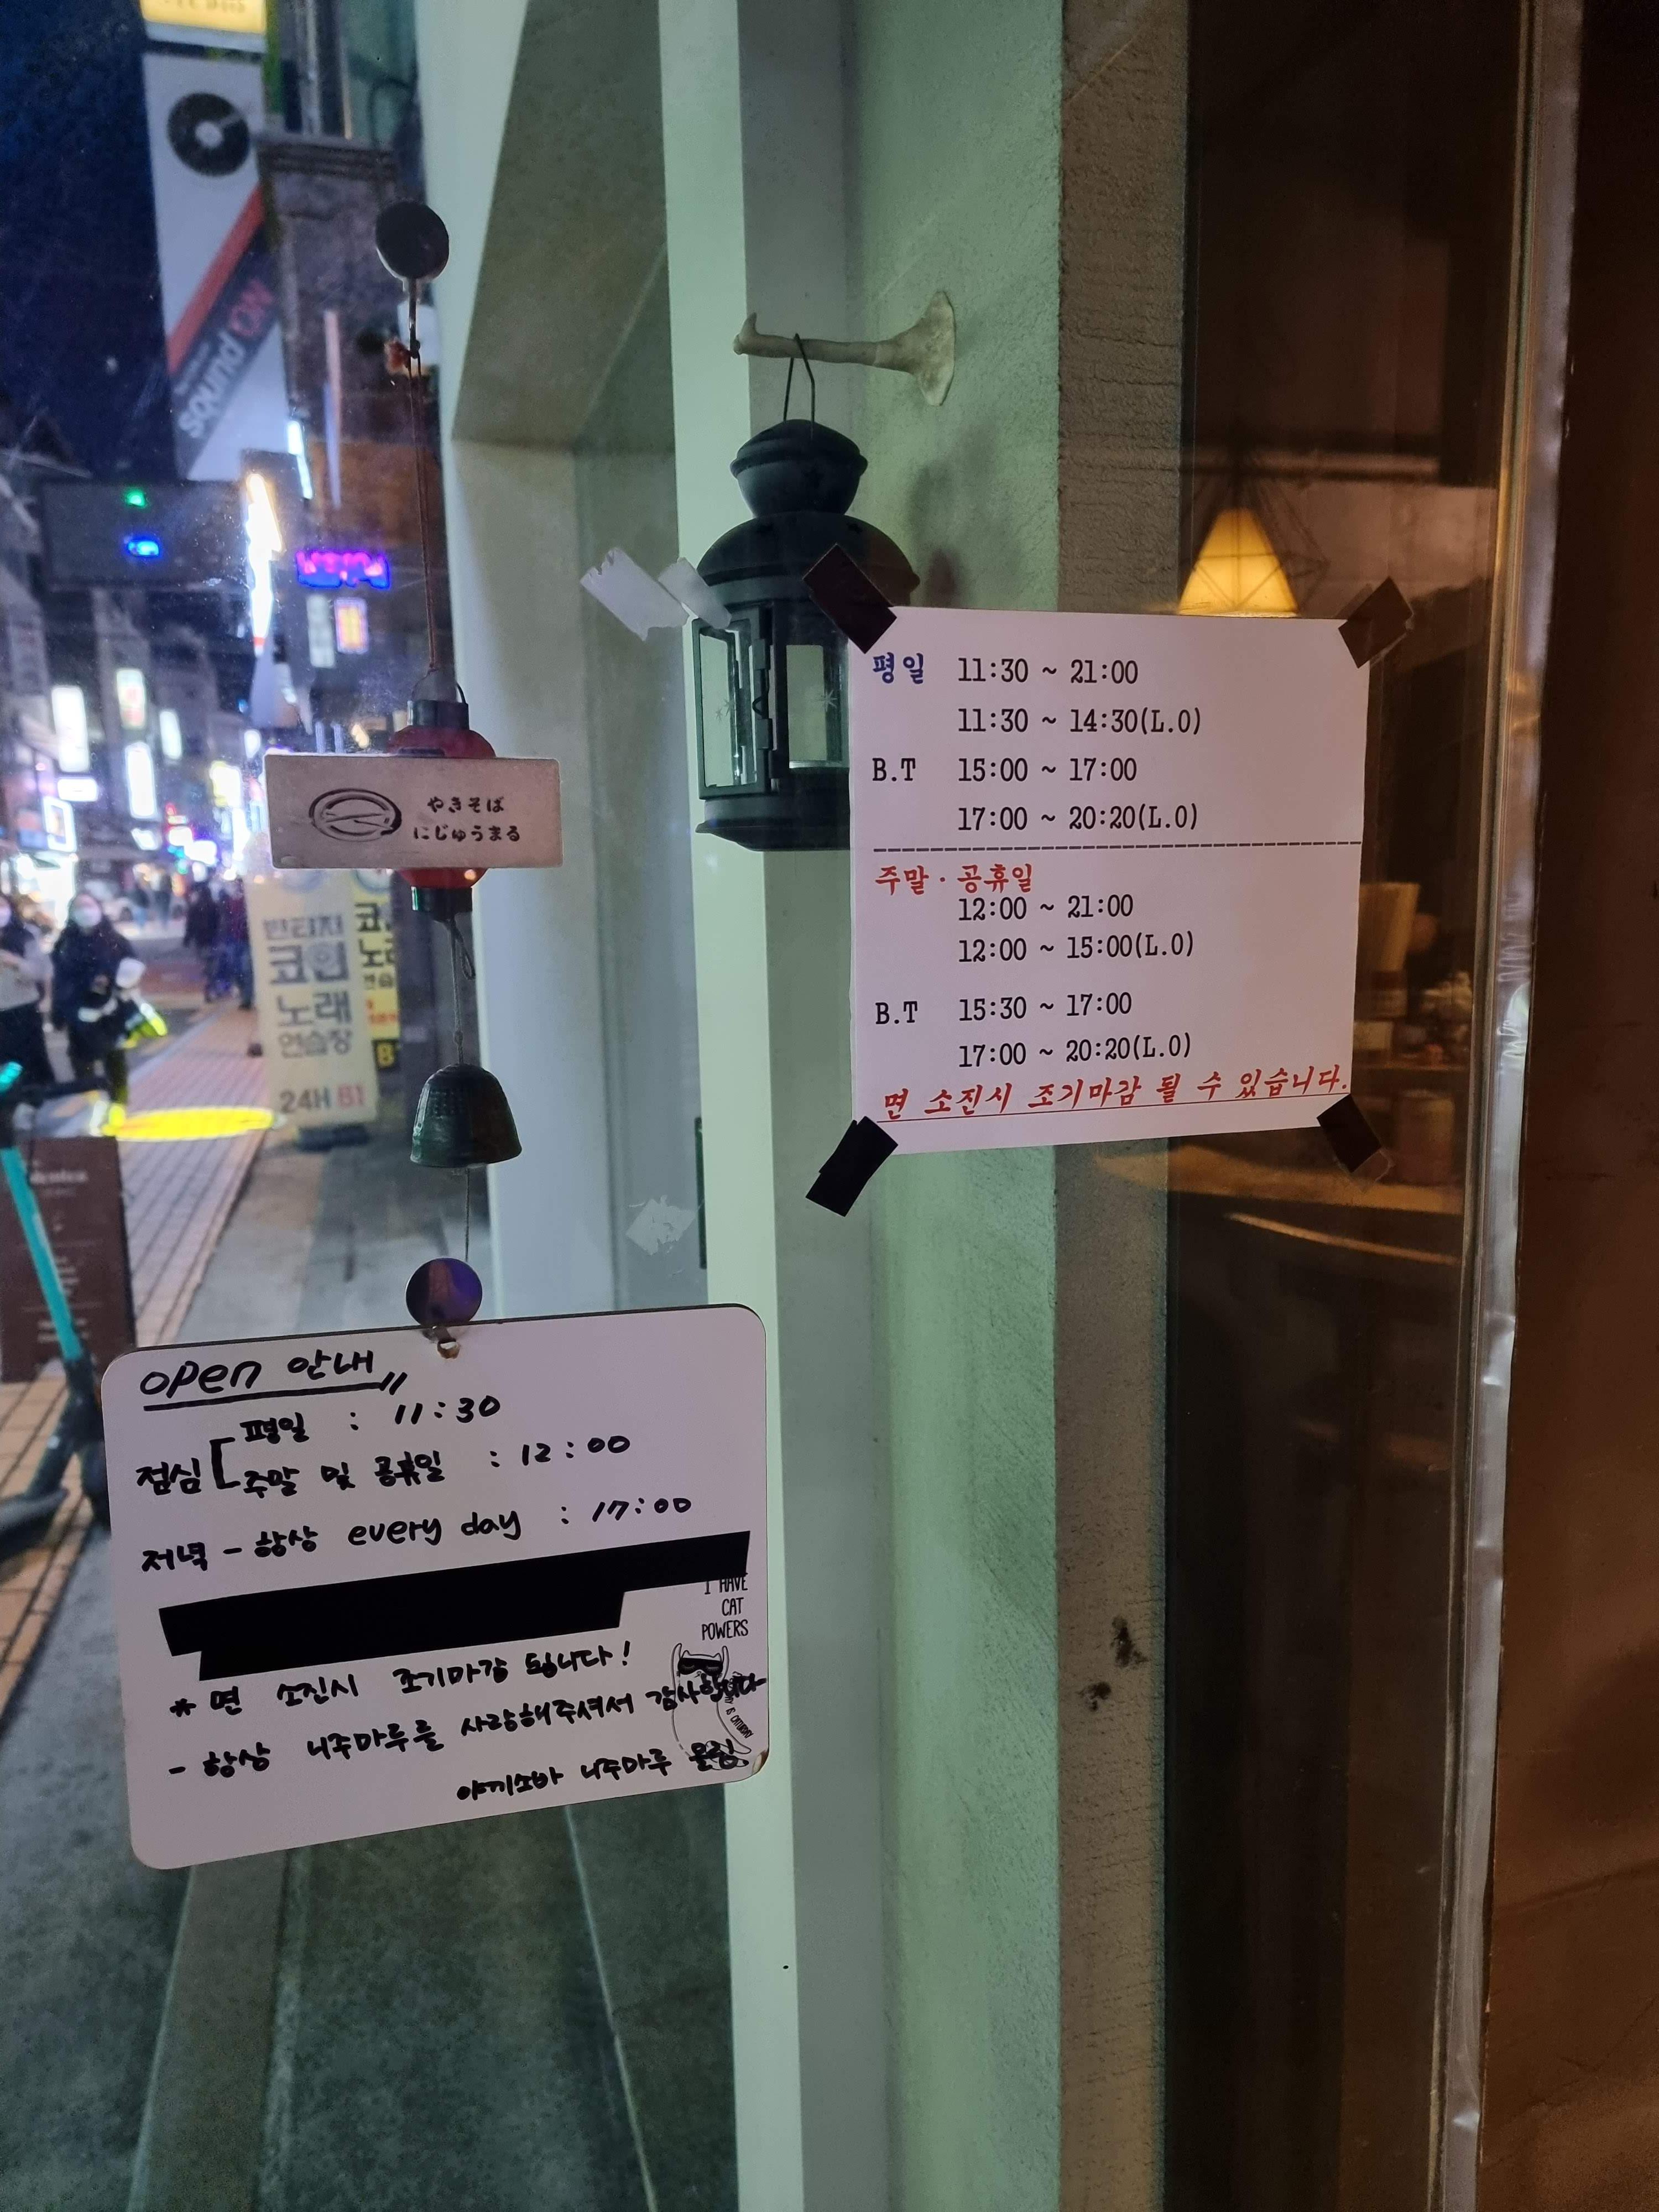 sound ON
やきそば
にじゅうまる
코인
노래
연습장
24H B1
평일 11:30 ~ 21:00
11:30 ~ 14:30(L.O)
B.T 15:00 ~ 17:00
17:00 ~ 20:20(L.O)
주말·공휴일
12:00 ~ 21:00
12:00 ~ 15:00(L.O)
B.T 15:30 ~ 17:00
17:00 ~ 20:20(L.O)
면 소진시 조기마감 될 수 있습니다.
open 안내
점심 평일 : 11:30
주말 및 공휴일 : 12:00
저녁 - 항상 every day : 17:00
I HAVE
CAT
POWERS
* 면 소진시 조기마감 됩니다!
- 항상 니주마루를 사랑해주셔서 감사합니다
야끼소바 니주마루 올림